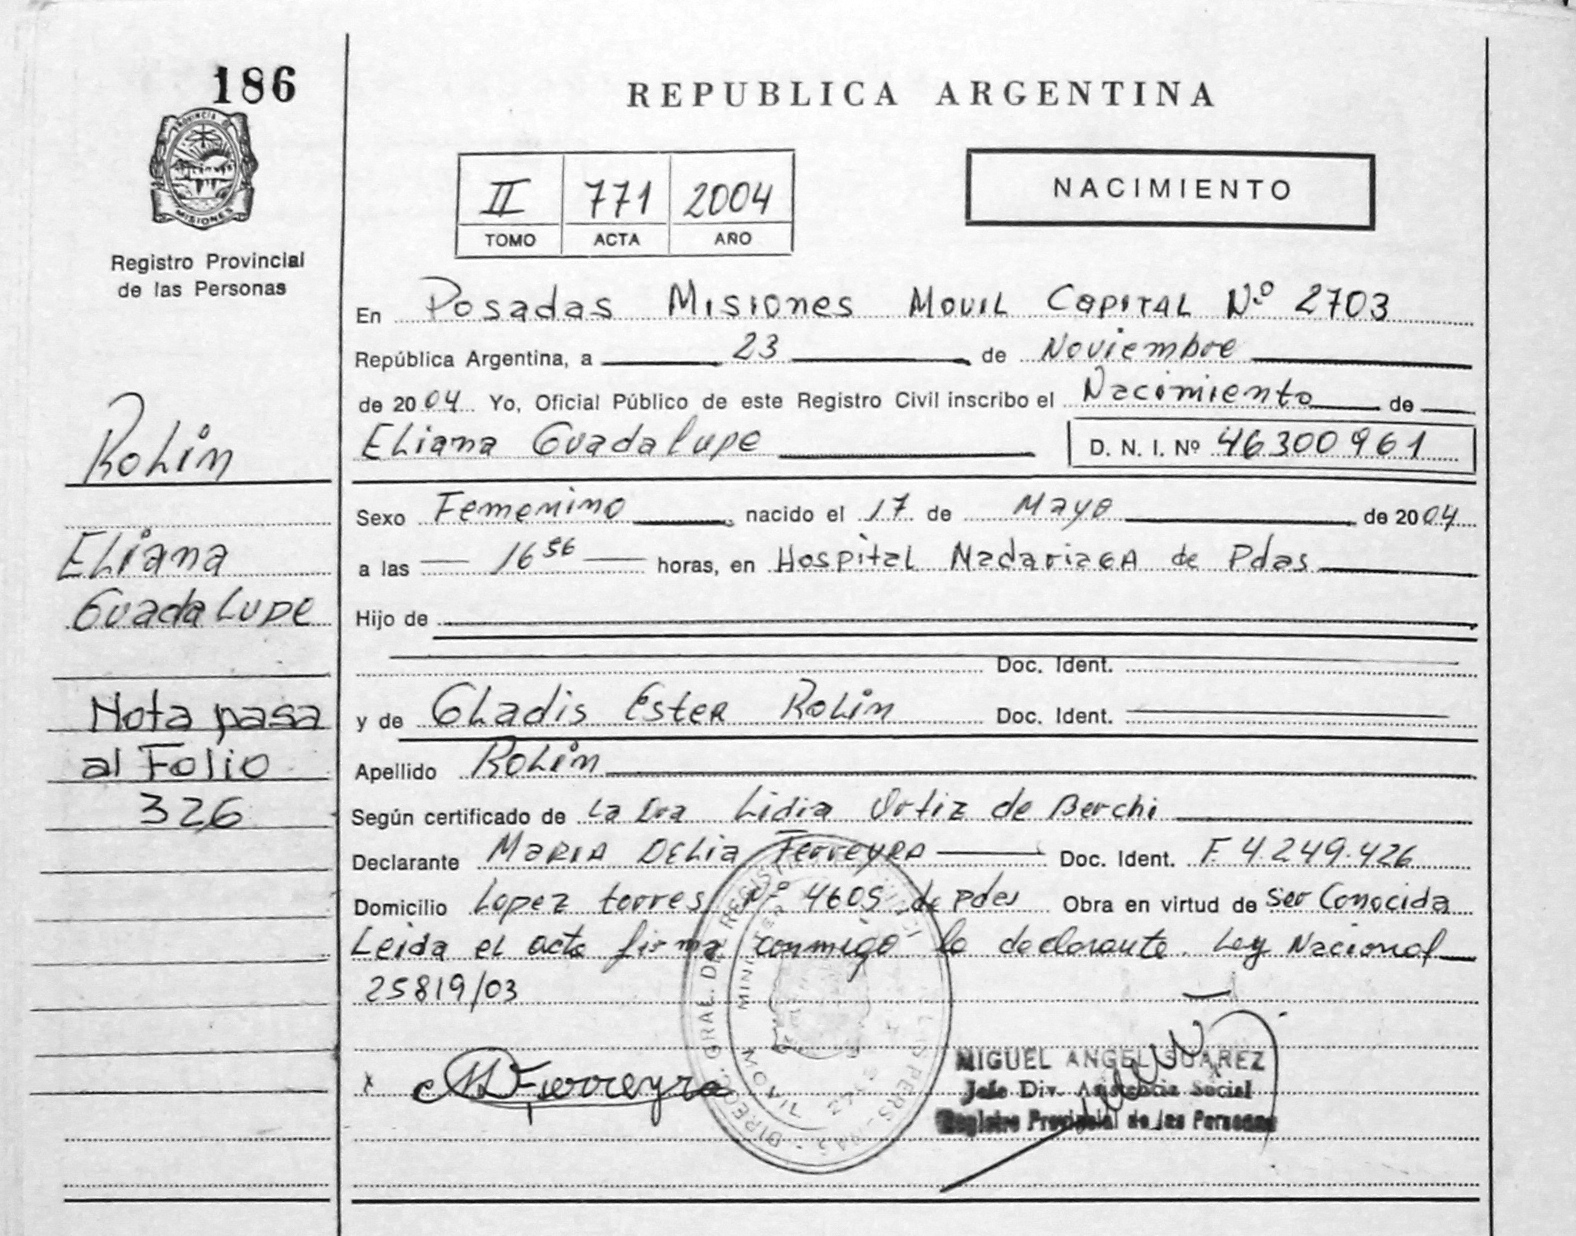 186
PROVINCIA DE
MISIONES
Registro Provincial
de las Personas
Rolin
Eliana
Guadalupe
Nota pasa
al Folio
326
REPUBLICA ARGENTINA
II 771 2004
TOMO ACTA AÑO
NACIMIENTO
En Posadas Misiones Movil Capital Nº 2703
República Argentina, a 23 de Noviembre
de 2004 Yo, Oficial Público de este Registro Civil inscribo el Nacimiento de
Eliana Guadalupe D. N. I. Nº 46.300961
Sexo Femenino, nacido el 17 de Mayo de 2004
a las 16 56 horas, en Hospital Madariaga de Pdas
Hijo de
Doc. Ident.
y de Gladis Ester Rolin Doc. Ident.
Apellido Rolin
Según certificado de La Dra Lidia Ortiz de Berchi
Declarante Maria Delia Ferreyra Doc. Ident. F 4249.426
Domicilio Lopez torres Nº 4605 de Pdas Obra en virtud de Ser Conocida
Leida el acta firma conmigo la declarante. Ley Nacional
25819/03
x MDFerreyra
MIGUEL ANGEL SUAREZ
Jefe Div. Asistencia Social
Registro Provincial de las Personas